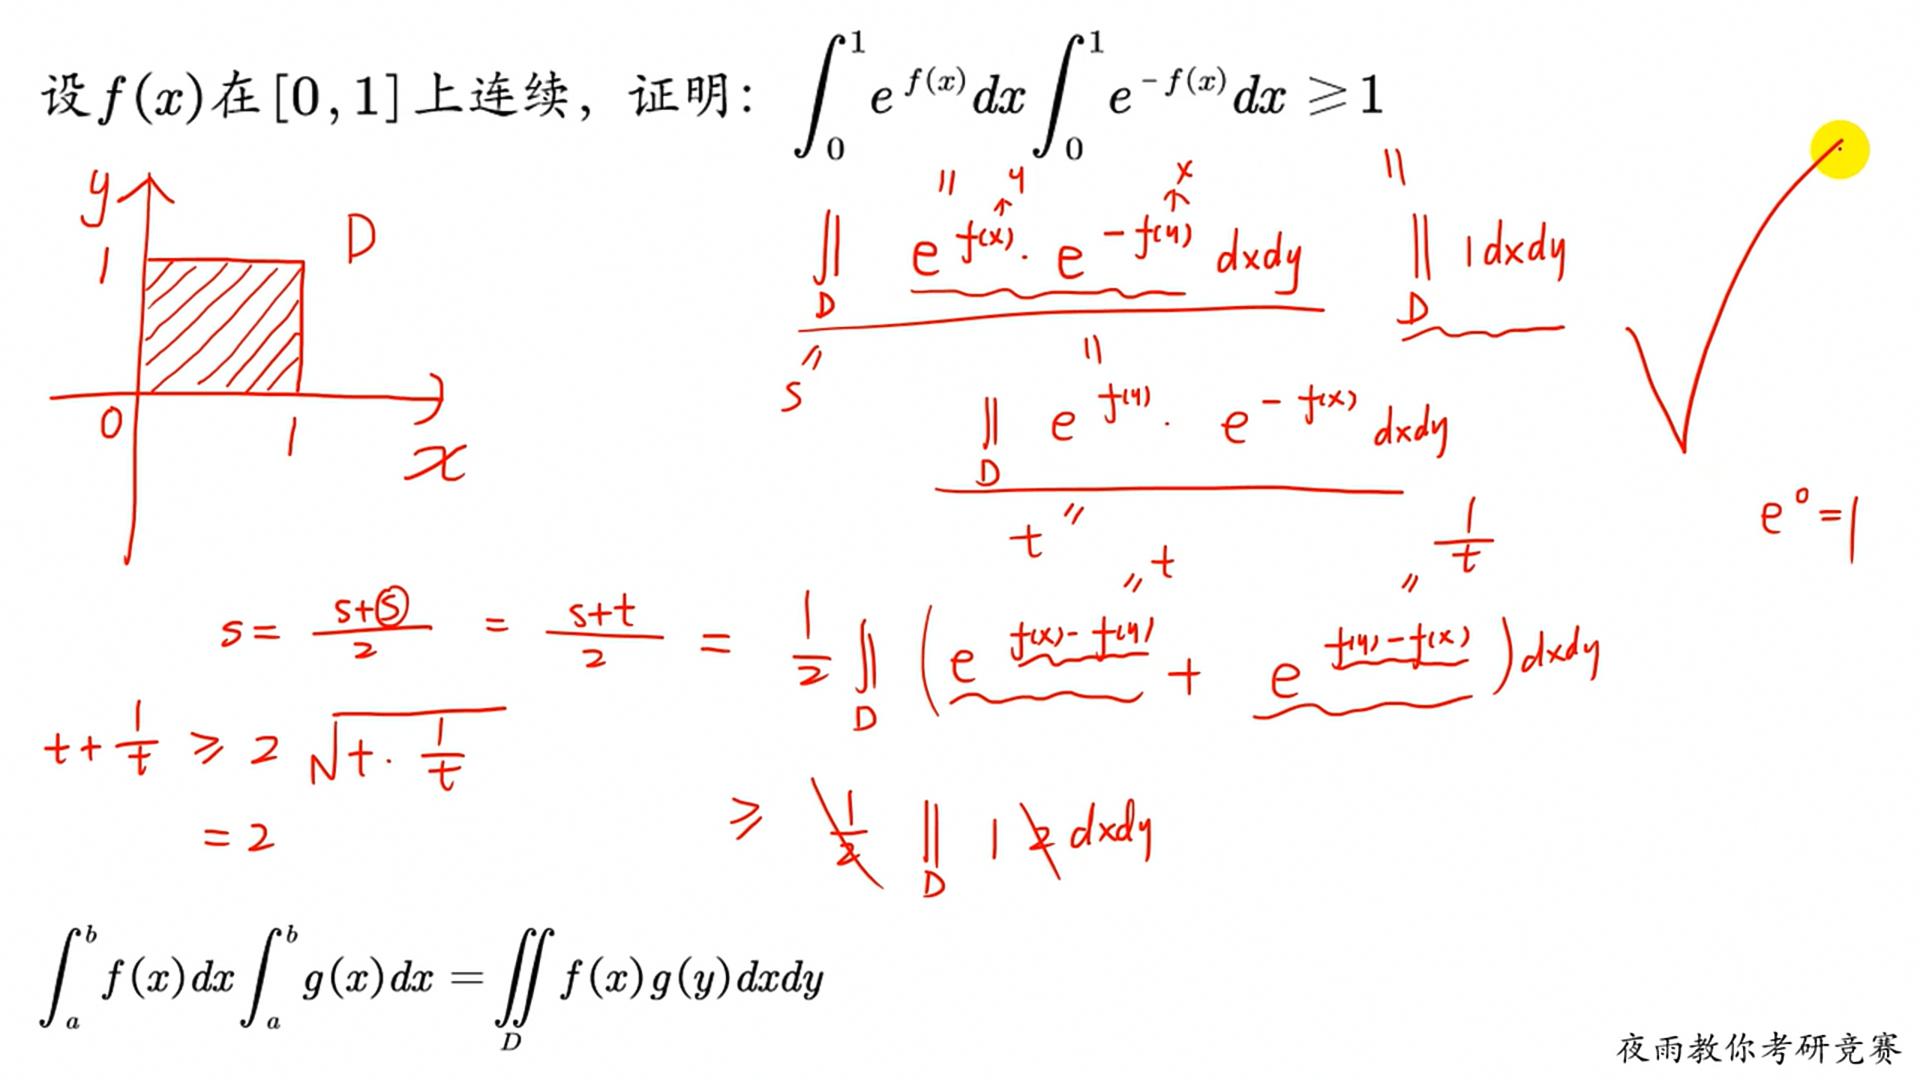 设f(x)在[0,1]上连续，证明：∫₀¹ e^{f(x)}dx ∫₀¹ e^{-f(x)}dx ⩾ 1
y
1
D
0
1
x
= y x =
∬_D e^{f(x)}·e^{-f(y)} dxdy
∬_D 1dxdy
= =
s
∬_D e^{f(y)}·e^{-f(x)} dxdy
=
t
e^0=1
= t = 1/t
s = (s+s)/2 = (s+t)/2 = 1/2 ∬_D (e^{f(x)-f(y)} + e^{f(y)-f(x)})dxdy
t+1/t ⩾ 2√(t·1/t)
=2
⩾ 1/2 ∬_D 1 2 dxdy
∫ₐᵇ f(x)dx ∫ₐᵇ g(x)dx = ∬_D f(x)g(y)dxdy
夜雨教你考研竞赛